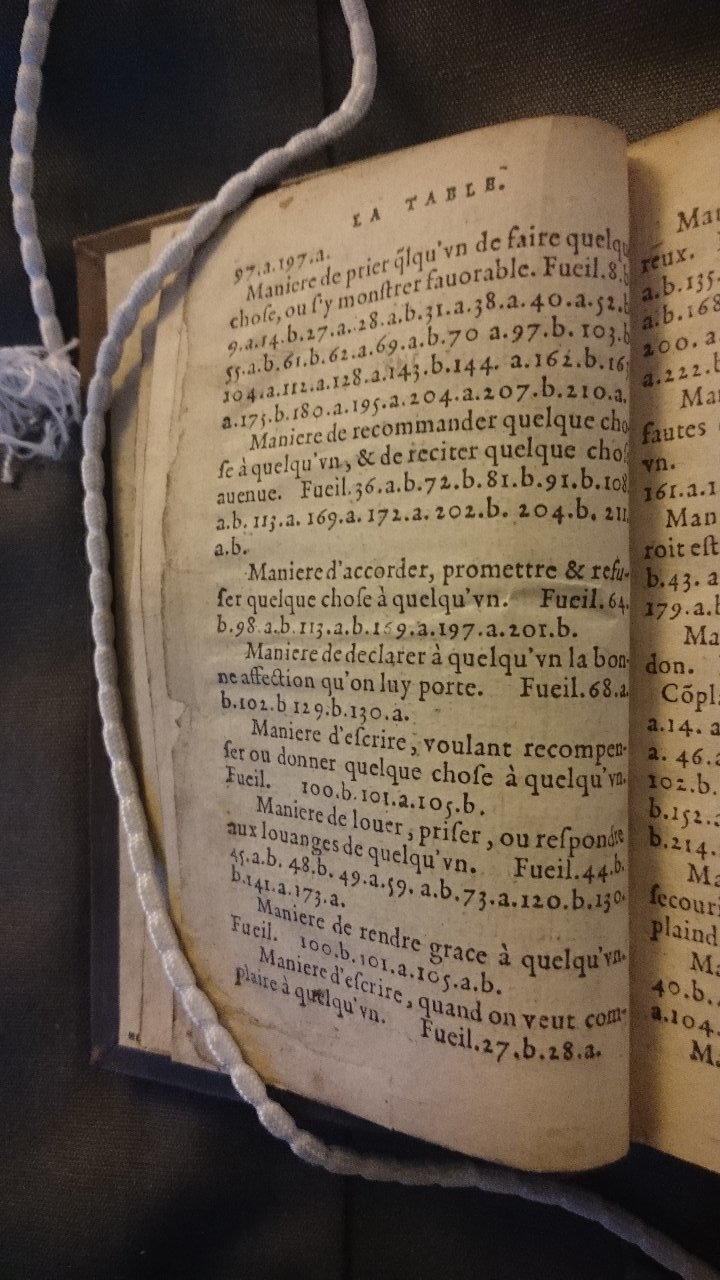 LA TABLE.
97.a.197.a.
Maniere de prier q̃lqu'vn de faire quelqu
choſe, ou ſ'y monſtrer fauorable. Fueil.8.b
9.a.14.b.27.a.28.a.b.31.a.38.a.40.a.52.b
55.a.b.61.b.62.a.69.a.b.70 a.97.b. 103.b
104.a.112.a.128.a.143.b.144. a.162.b.16
a.175.b.180.a.195.a.204.a.207.b.210.a.
Maniere de recommander quelque cho
ſe à quelqu'vn, & de reciter quelque choſ
auenue. Fueil.36.a.b.72.b.81.b.91.b.108
a.b. 113.a. 169.a. 172.a. 202.b. 204.b. 211.
a.b.
Maniere d'accorder, promettre & refu-
ſer quelque choſe à quelqu'vn. Fueil.64.
b.98.a.b.113.a.b.159.a.197.a.201.b.
Maniere de declarer à quelqu'vn la bon-
ne affection qu'on luy porte. Fueil.68.a.
b.102.b 129.b.130.a.
Maniere d'eſcrire, voulant recompen-
ſer ou donner quelque choſe à quelqu'vn.
Fueil. 100.b.101.a.105.b.
Maniere de louer, priſer, ou reſpondre
aux louanges de quelqu'vn. Fueil.44.b.
45.a.b. 48.b. 49.a.59. a.b.73.a.120.b.130.
b.141.a.173.a.
Maniere de rendre grace à quelqu'vn.
Fueil. 100.b.101.a.105.a.b.
Maniere d'eſcrire, quand on veut com-
plaire à quelqu'vn. Fueil.27.b.28.a.
Mau
reux.
a.b.135.
a.b.168
200. a
a.222.b
Ma
fautes
vn.
161.a.1
Man
roit eſt
b.43. a
179.a.b
Ma
don.
Cõpl
a.14. a
a. 46.
102.b.
b.152.
b.214.
Ma
ſecouri
plaind
Ma
40.b.
a.104.
M